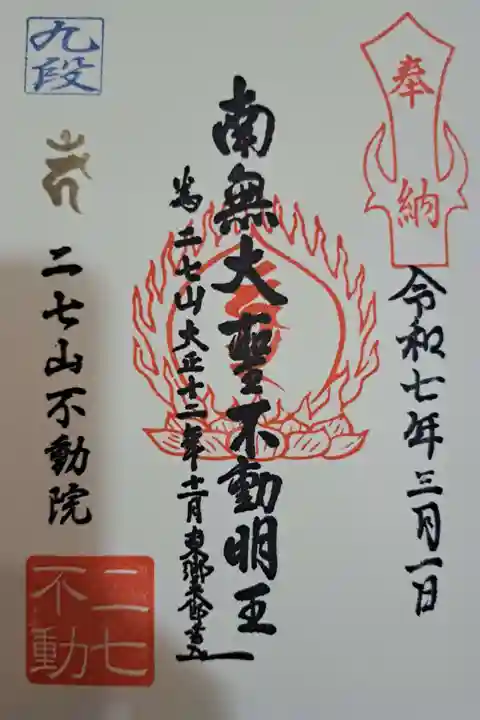 奉納
令和七年三月一日
南無大聖不動明王
為二七山大正十二年十二月東郷
九段
二七山不動院
二七
不動